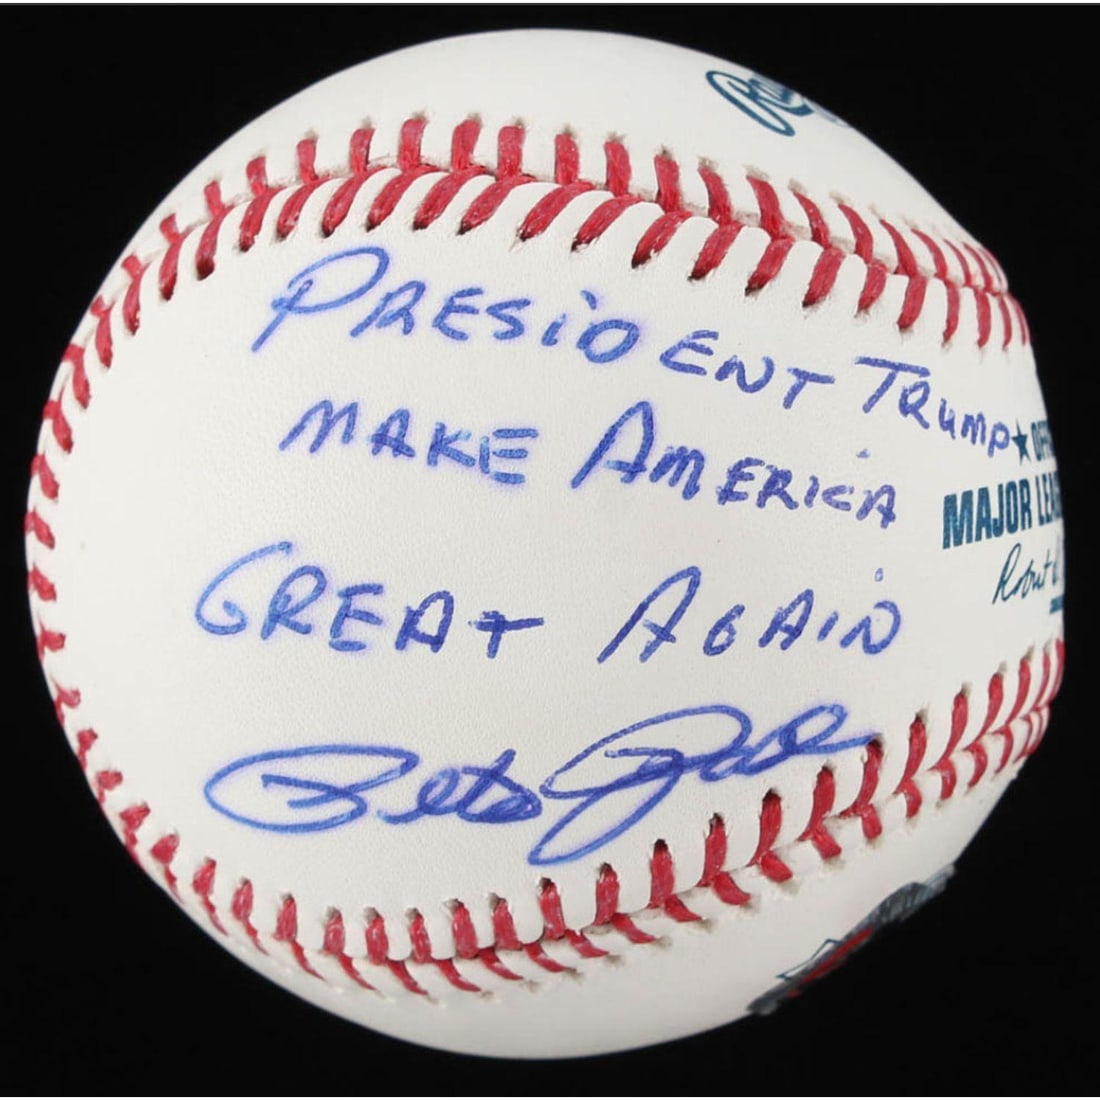 PRESiDENT TRUMP
MAKE AMERICA
GREAT AGAiN
Pete Rose
MAJOR